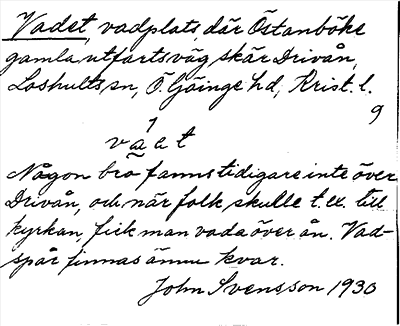 Vadet, vadplats där Östanböke
gamla utfartsväg skär Drivån,
Loshults sn, Ö. Göinge hd, Krist. l.
9
Någon bro fanns tidigare inte över
Drivån, och när folk skulle t. ex. till
kyrkan, fick man vada över ån. Vad-
spår finnas ännu kvar.
John Svensson 1930